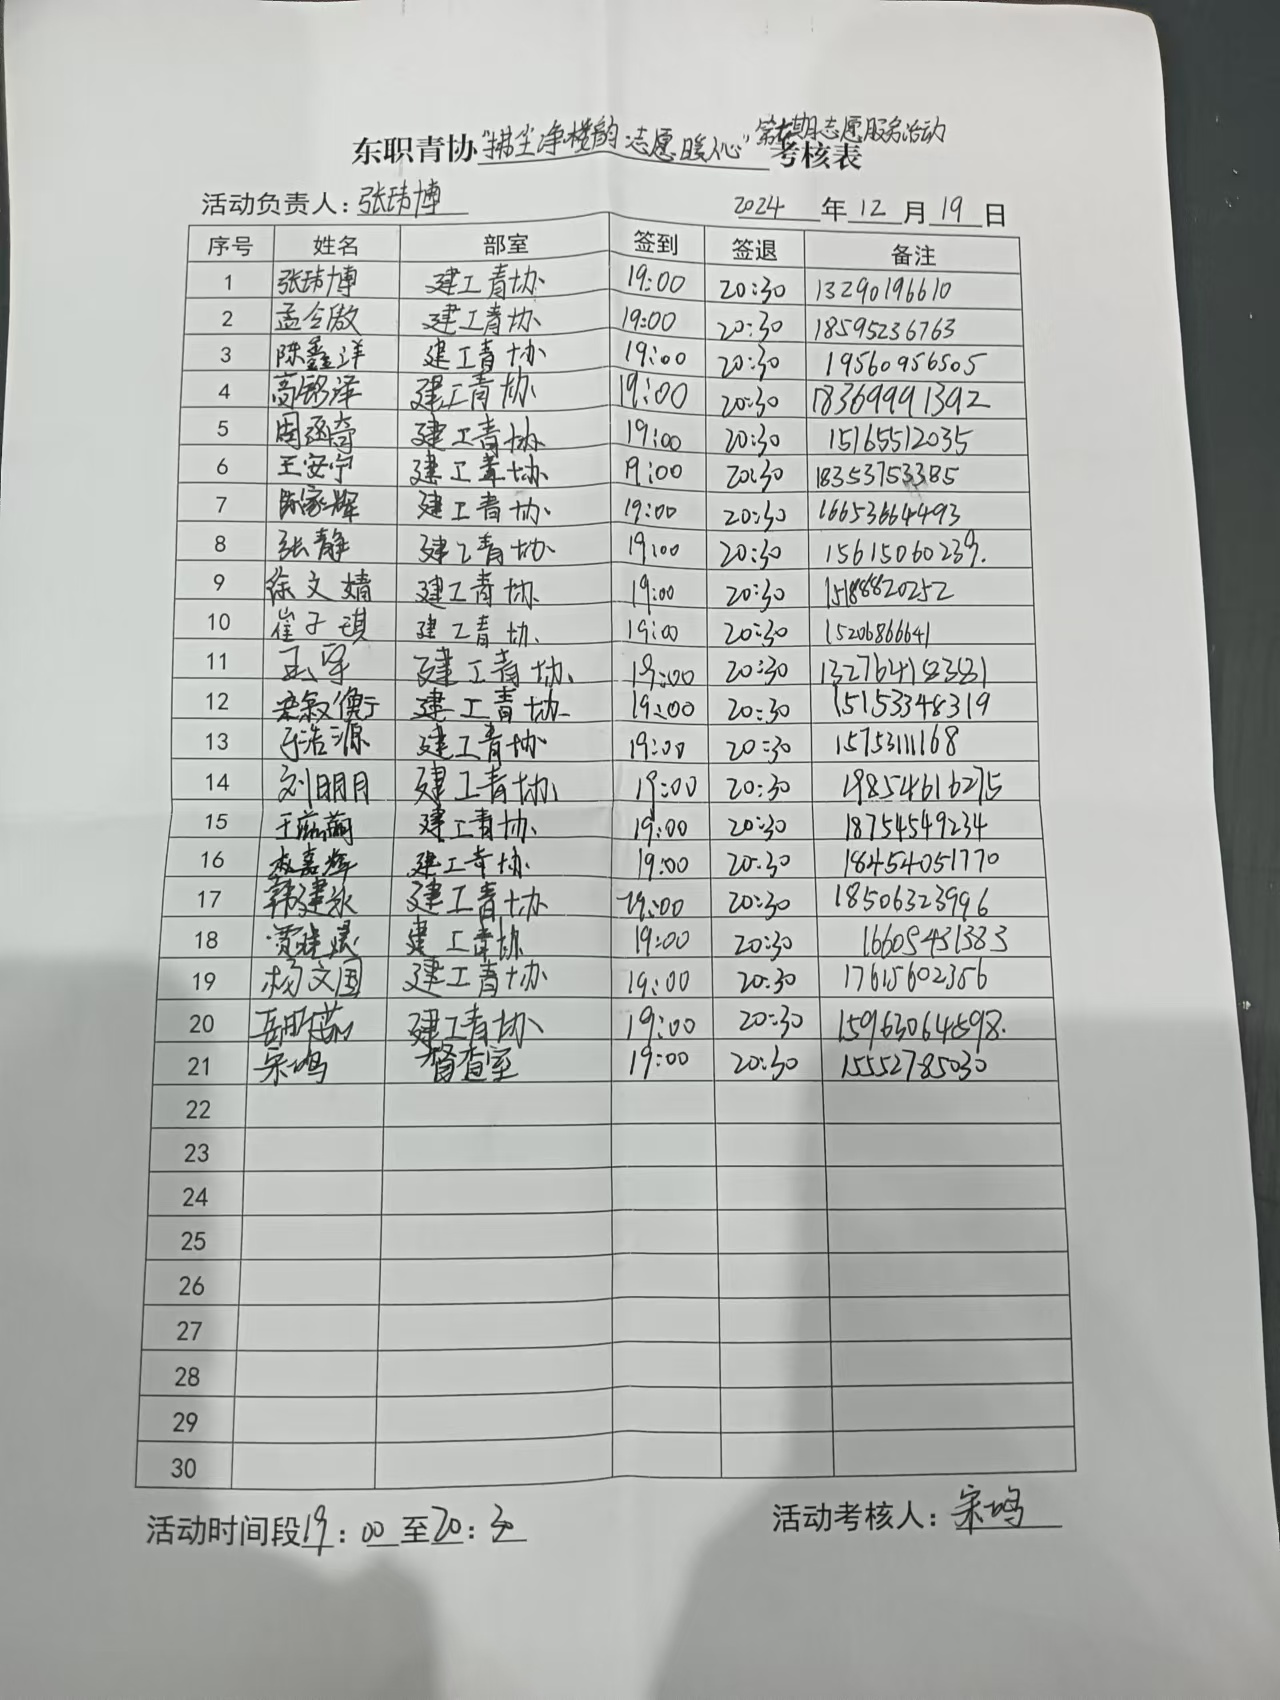 第 期志愿服务活动
东职青协"拂尘净楼韵 志愿暖人心"考核表
活动负责人：张玮博 2024 年 12 月 19 日
序号 姓名 部室 签到 签退 备注
1 张玮博 建工青协 19:00 20:30 13290196610
2 孟令傲 建工青协 19:00 20:30 18595236763
3 陈鑫洋 建工青协 19:00 20:30 19560956505
4 高铭泽 建工青协 19:00 20:30 18369991392
5 周函奇 建工青协 19:00 20:30 15165512035
6 王安宁 建工青协 19:00 20:30 18353753385
7 陈家辉 建工青协 19:00 20:30 16653664493
8 张静 建工青协 19:00 20:30 15615060239.
9 徐文婧 建工青协 19:00 20:30 15188820252
10 崔子琪 建工青协 19:00 20:30 15206866641
11 建工青协 19:00 20:30
12 建工青协 19:00 20:30 15153348319
13 于浩源 建工青协 19:00 20:30 15753111168
14 刘明月 建工青协 19:00 20:30 19854616275
15 建工青协 19:00 20:30 18754549234
16 嘉辉 建工青协 19:00 20:30 18454051770
17 韩建 建工青协 19:00 20:30 18506323996
18 贾 建工青协 19:00 20:30 16605431383
19 杨文国 建工青协 19:00 20:30 17615602356
20 建工青协 19:00 20:30
21 宋鸣 督查室 19:00 20:30 15552785030
22
23
24
25
26
27
28
29
30
活动时间段19：00至20：30 活动考核人：宋鸣